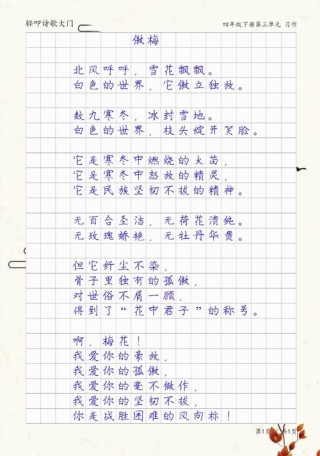 轻叩诗歌大门
四年级下册第三单元 习作
傲梅
北风呼呼，雪花飘飘。
白色的世界，它傲立独放。
数九寒冬，冰封雪地。
白色的世界，枝头绽开笑脸。
它是寒冬中燃烧的火苗，
它是寒冬中怒放的精灵，
它是民族坚韧不拔的精神。
无百合圣洁，无荷花清纯。
无玫瑰娇艳，无牡丹华贵。
但它纤尘不染，
骨子里独有的孤傲，
对世俗不屑一顾，
得到了“花中君子”的称号。
啊，梅花！
我爱你的豪放，
我爱你的孤傲，
我爱你的毫不做作，
我爱你的坚韧不拔，
你是战胜困难的风向标！
第1页